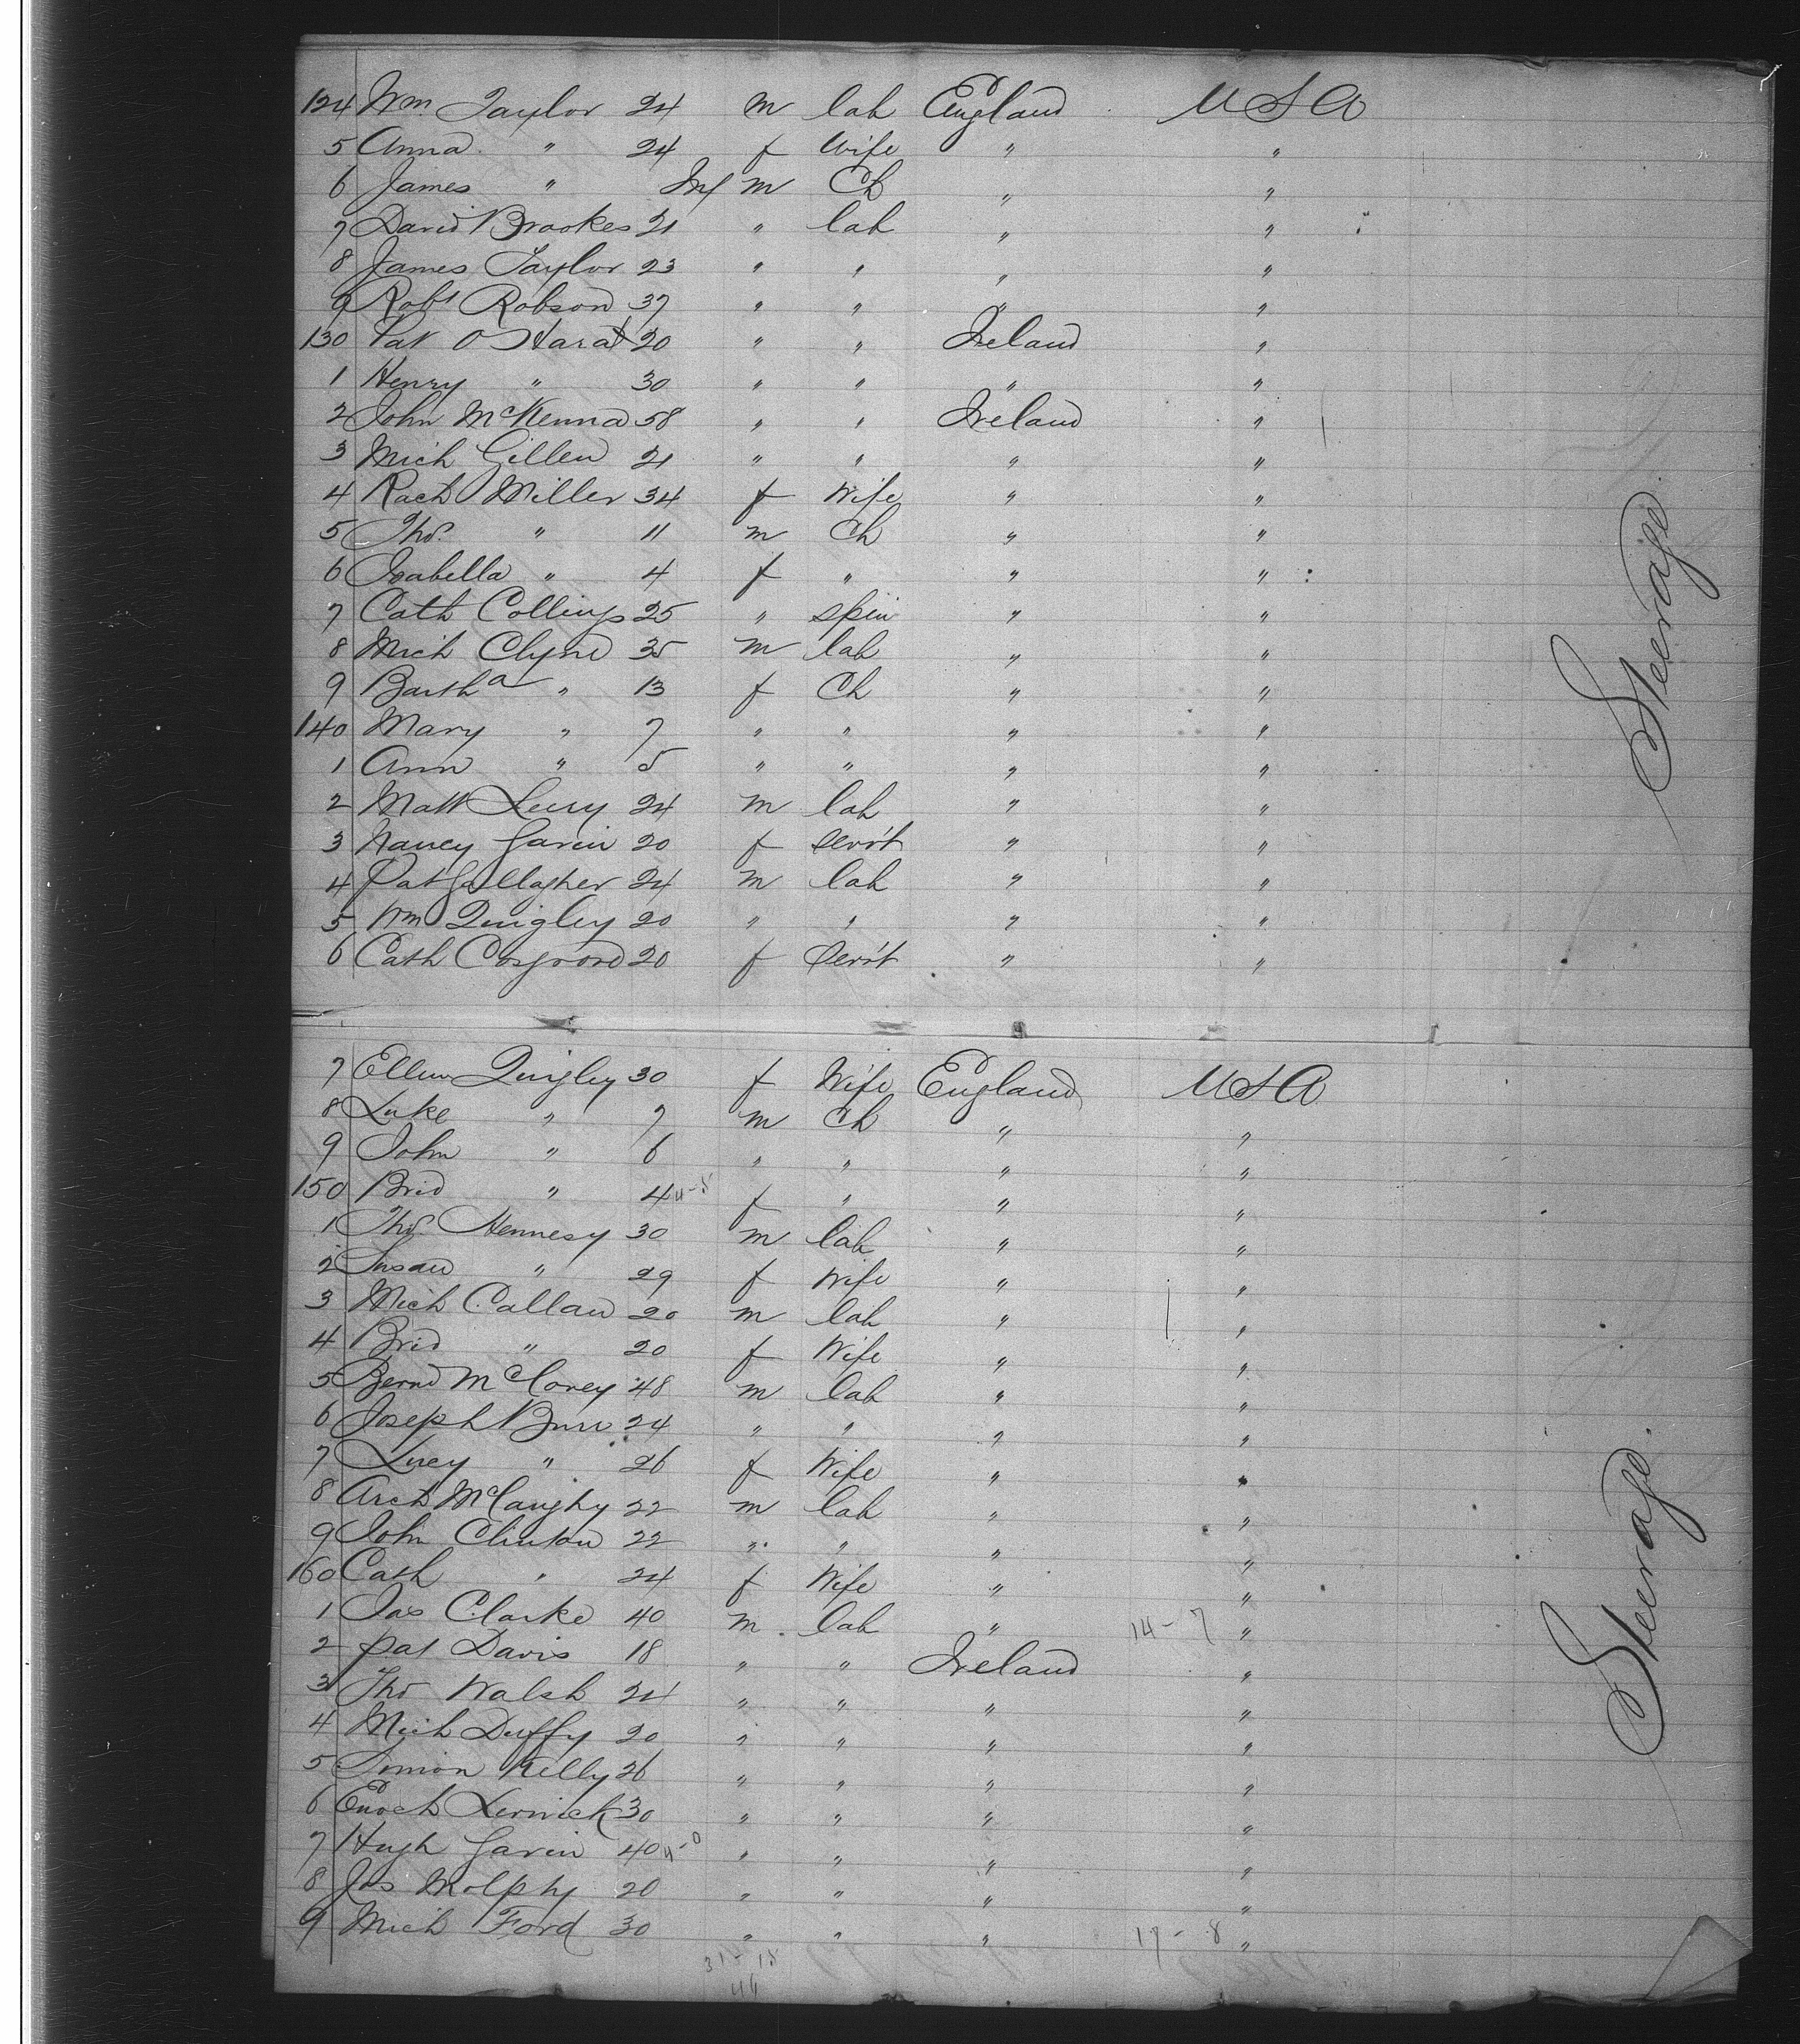 124 Wm Taylor 24 m lab England U S A
5 Anna " 24 f Wife " "
6 James " Inf m Ch " "
7 David Brookes 21 " lab " "
8 James Taylor 23 " " " "
9 Robt Robson 37 " " " "
130 Pat O Hara 20 " " Ireland "
1 Henry " 30 " " " "
2 John McKenna 58 " " Ireland "
3 Mich Gillen 21 " " " "
4 Rach Miller 34 f Wife " "
5 Thos. " 11 m Ch " "
6 Isabella " 4 f " " "
7 Cath Collings 25 " spin " "
8 Mich Clyne 35 m lab " "
9 Bartha " 13 f Ch " "
140 Mary " 7 " " " "
1 Ann " 5 " " " "
2 Matt 24 m lab " "
3 Nancy Gavin 20 f serv't " "
4 Pat Gallagher 24 m lab " "
5 Wm Quigley 20 " " " "
6 Cath Cosgrove 20 f Serv't " "
Steerage.
7 Ellen Quigley 30 f Wife England U S A
8 Luke " 7 m Ch " "
9 John " 6 " " " "
150 Brid " 4 f " " "
1 Thos. Hennesy 30 m lab " "
2 Susan " 29 f Wife " "
3 Mich Callan 20 m lab " "
4 Brid " 20 f Wife " "
5 Bernd McCorey 48 m lab " "
6 Joseph 24 " " " "
7 Lucy " 26 f Wife " "
8 Arch McCaughy 22 m lab " "
9 John Clinton 22 " " " "
160 Cath " 24 f Wife " "
1 Jas Clarke 40 m lab " 14-7 "
2 Pat Davis 18 " " Ireland "
3 Thos Walsh 24 " " " "
4 Mich Duffy 20 " " " "
5 Simon Kelly 26 " " " "
6 Enoch Lerwick 30 " " " "
7 Hugh Gavin 40 " " " "
8 Jas Molphy 20 " " " "
9 Mich Ford 30 " " " 17-8 "
Steerage.